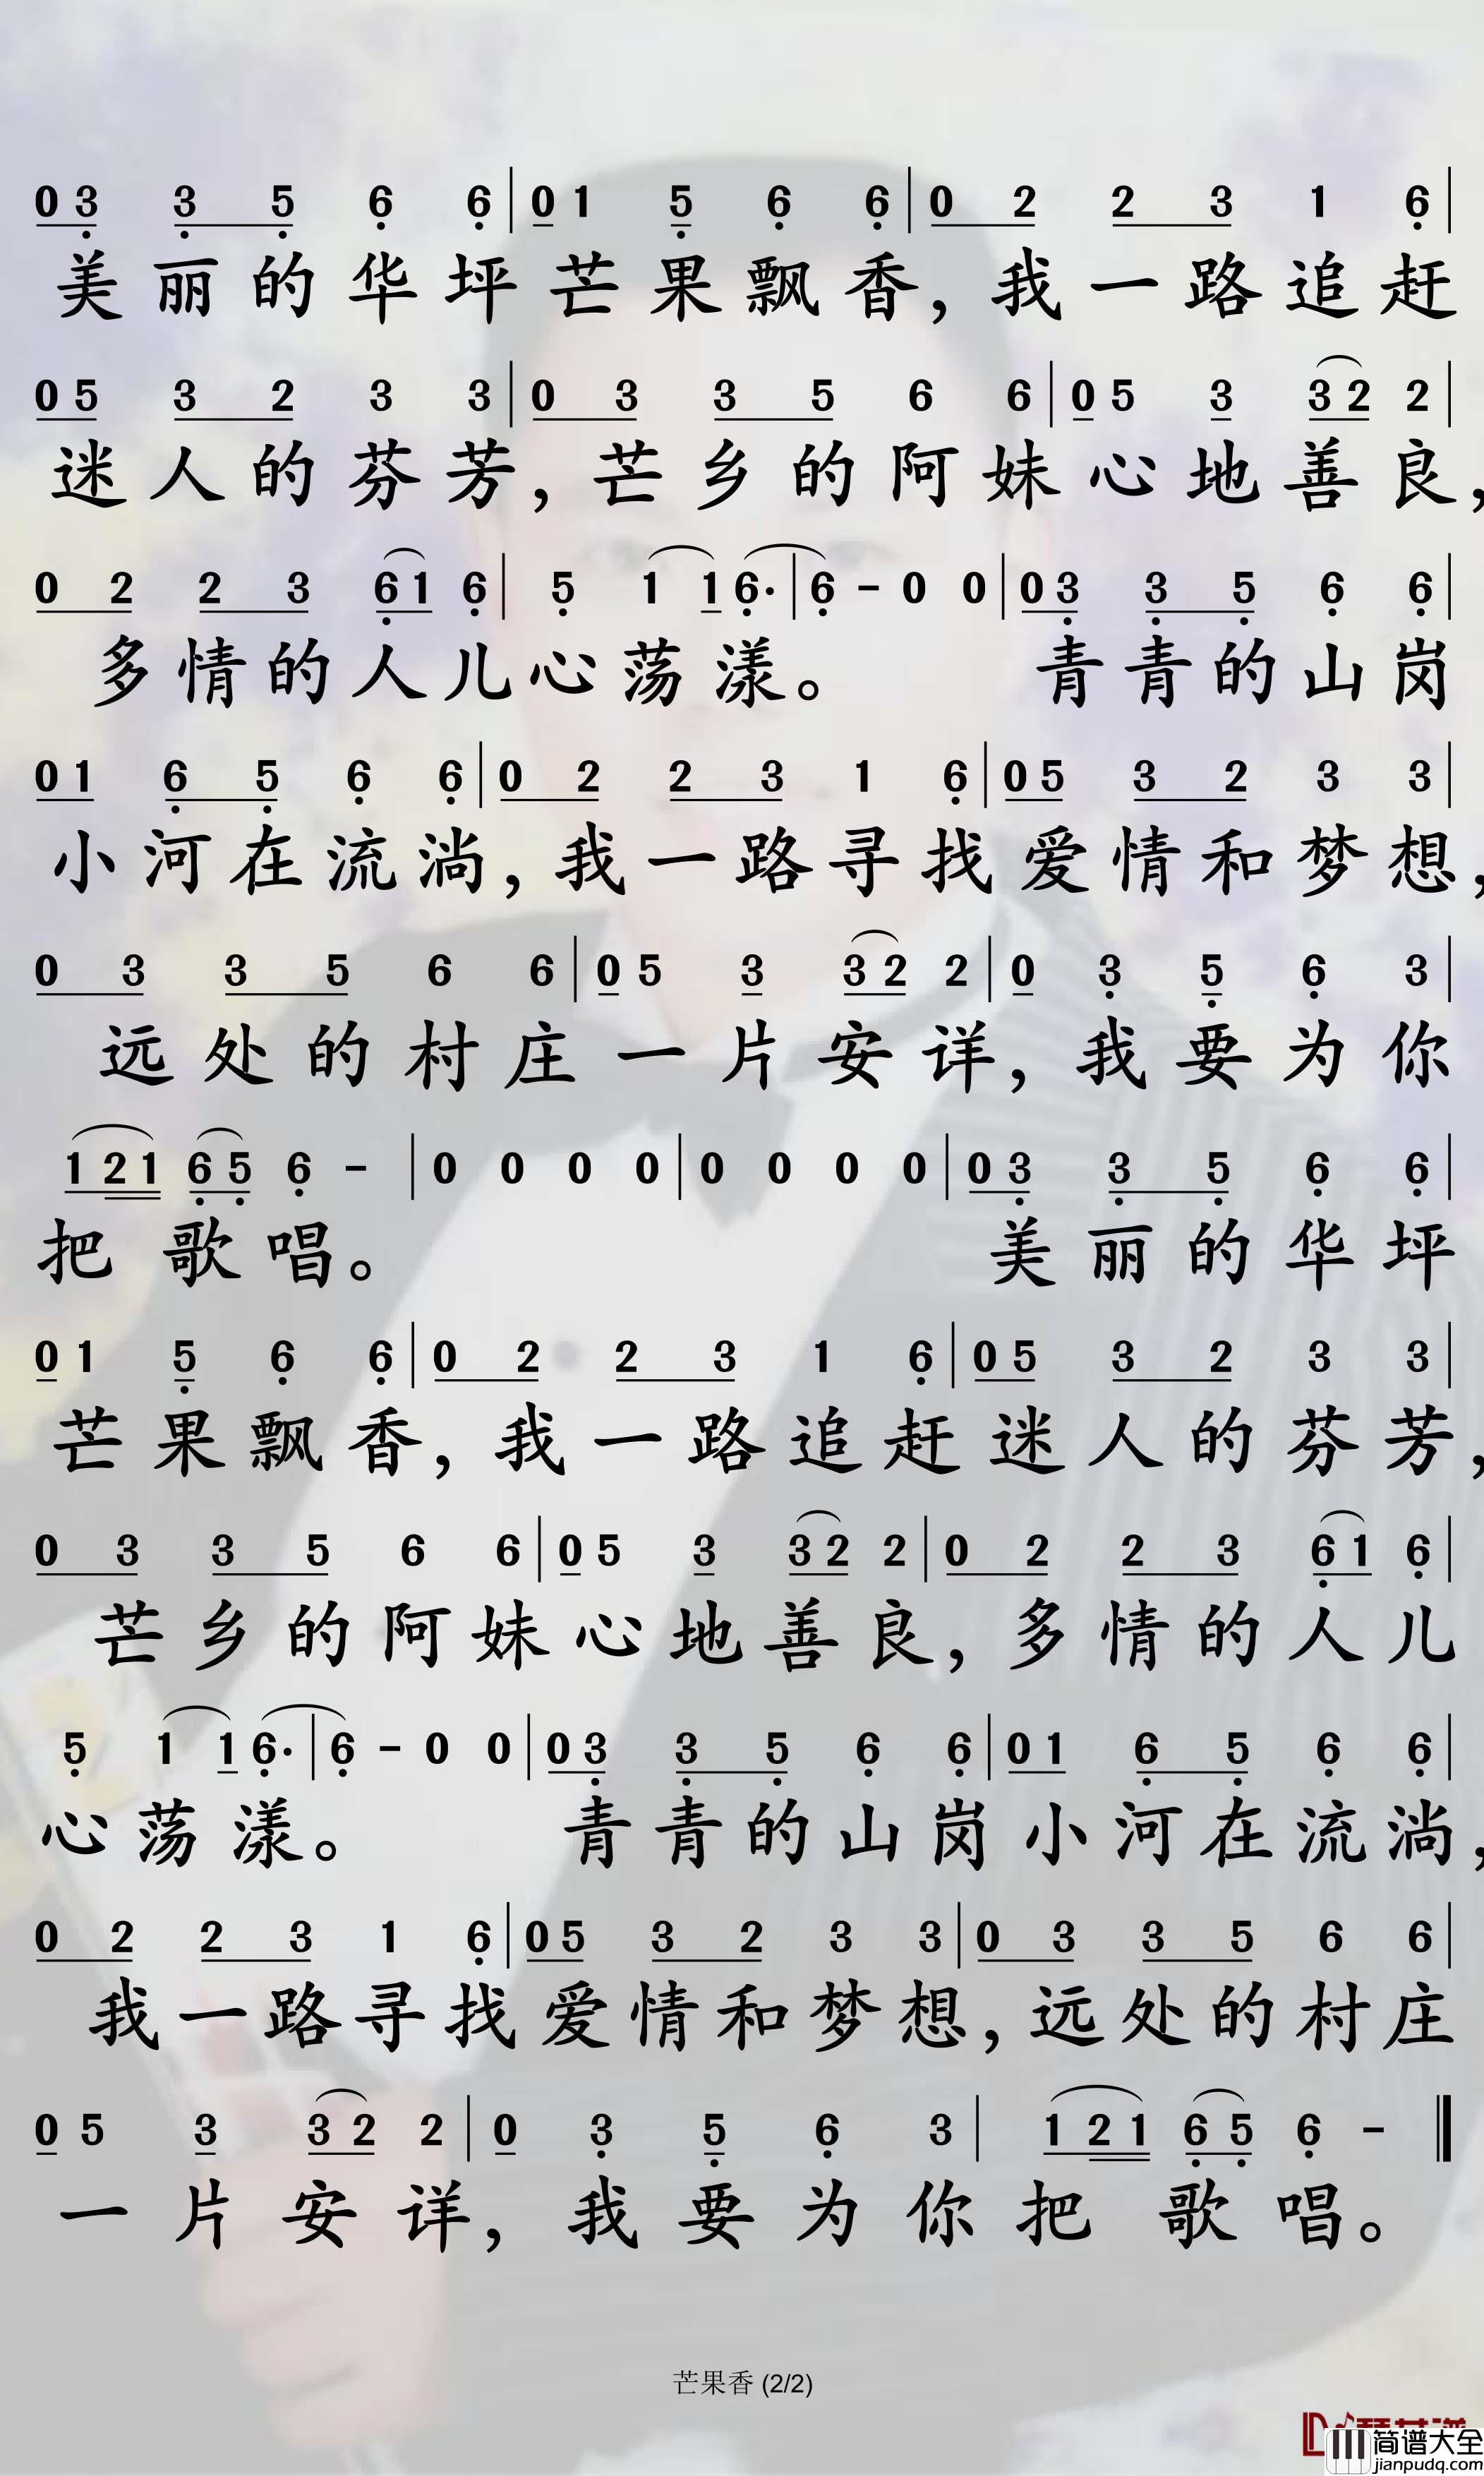 0 3 3 5 6 6 | 0 1 5 6 6 | 0 2 2 3 1 6 |
美丽的华坪芒果飘香，我一路追赶
0 5 3 2 3 3 | 0 3 3 5 6 6 | 0 5 3 3 2 2 |
迷人的芬芳，芒乡的阿妹心地善良，
0 2 2 3 6 1 6 | 5 1 1 6· | 6 - 0 0 | 0 3 3 5 6 6 |
多情的人儿心荡漾。 青青的山岗
0 1 6 5 6 6 | 0 2 2 3 1 6 | 0 5 3 2 3 3 |
小河在流淌，我一路寻找爱情和梦想，
0 3 3 5 6 6 | 0 5 3 3 2 2 | 0 3 5 6 3 |
远处的村庄一片安详，我要为你
1 2 1 6 5 6 - | 0 0 0 0 | 0 0 0 0 | 0 3 3 5 6 6 |
把歌唱。 美丽的华坪
0 1 5 6 6 | 0 2 2 3 1 6 | 0 5 3 2 3 3 |
芒果飘香，我一路追赶迷人的芬芳，
0 3 3 5 6 6 | 0 5 3 3 2 2 | 0 2 2 3 6 1 6 |
芒乡的阿妹心地善良，多情的人儿
5 1 1 6· | 6 - 0 0 | 0 3 3 5 6 6 | 0 1 6 5 6 6 |
心荡漾。 青青的山岗小河在流淌，
0 2 2 3 1 6 | 0 5 3 2 3 3 | 0 3 3 5 6 6 |
我一路寻找爱情和梦想，远处的村庄
0 5 3 3 2 2 | 0 3 5 6 3 | 1 2 1 6 5 6 - ||
一片安详，我要为你把歌唱。
芒果香 (2/2)
简谱大全
jianpudq.com